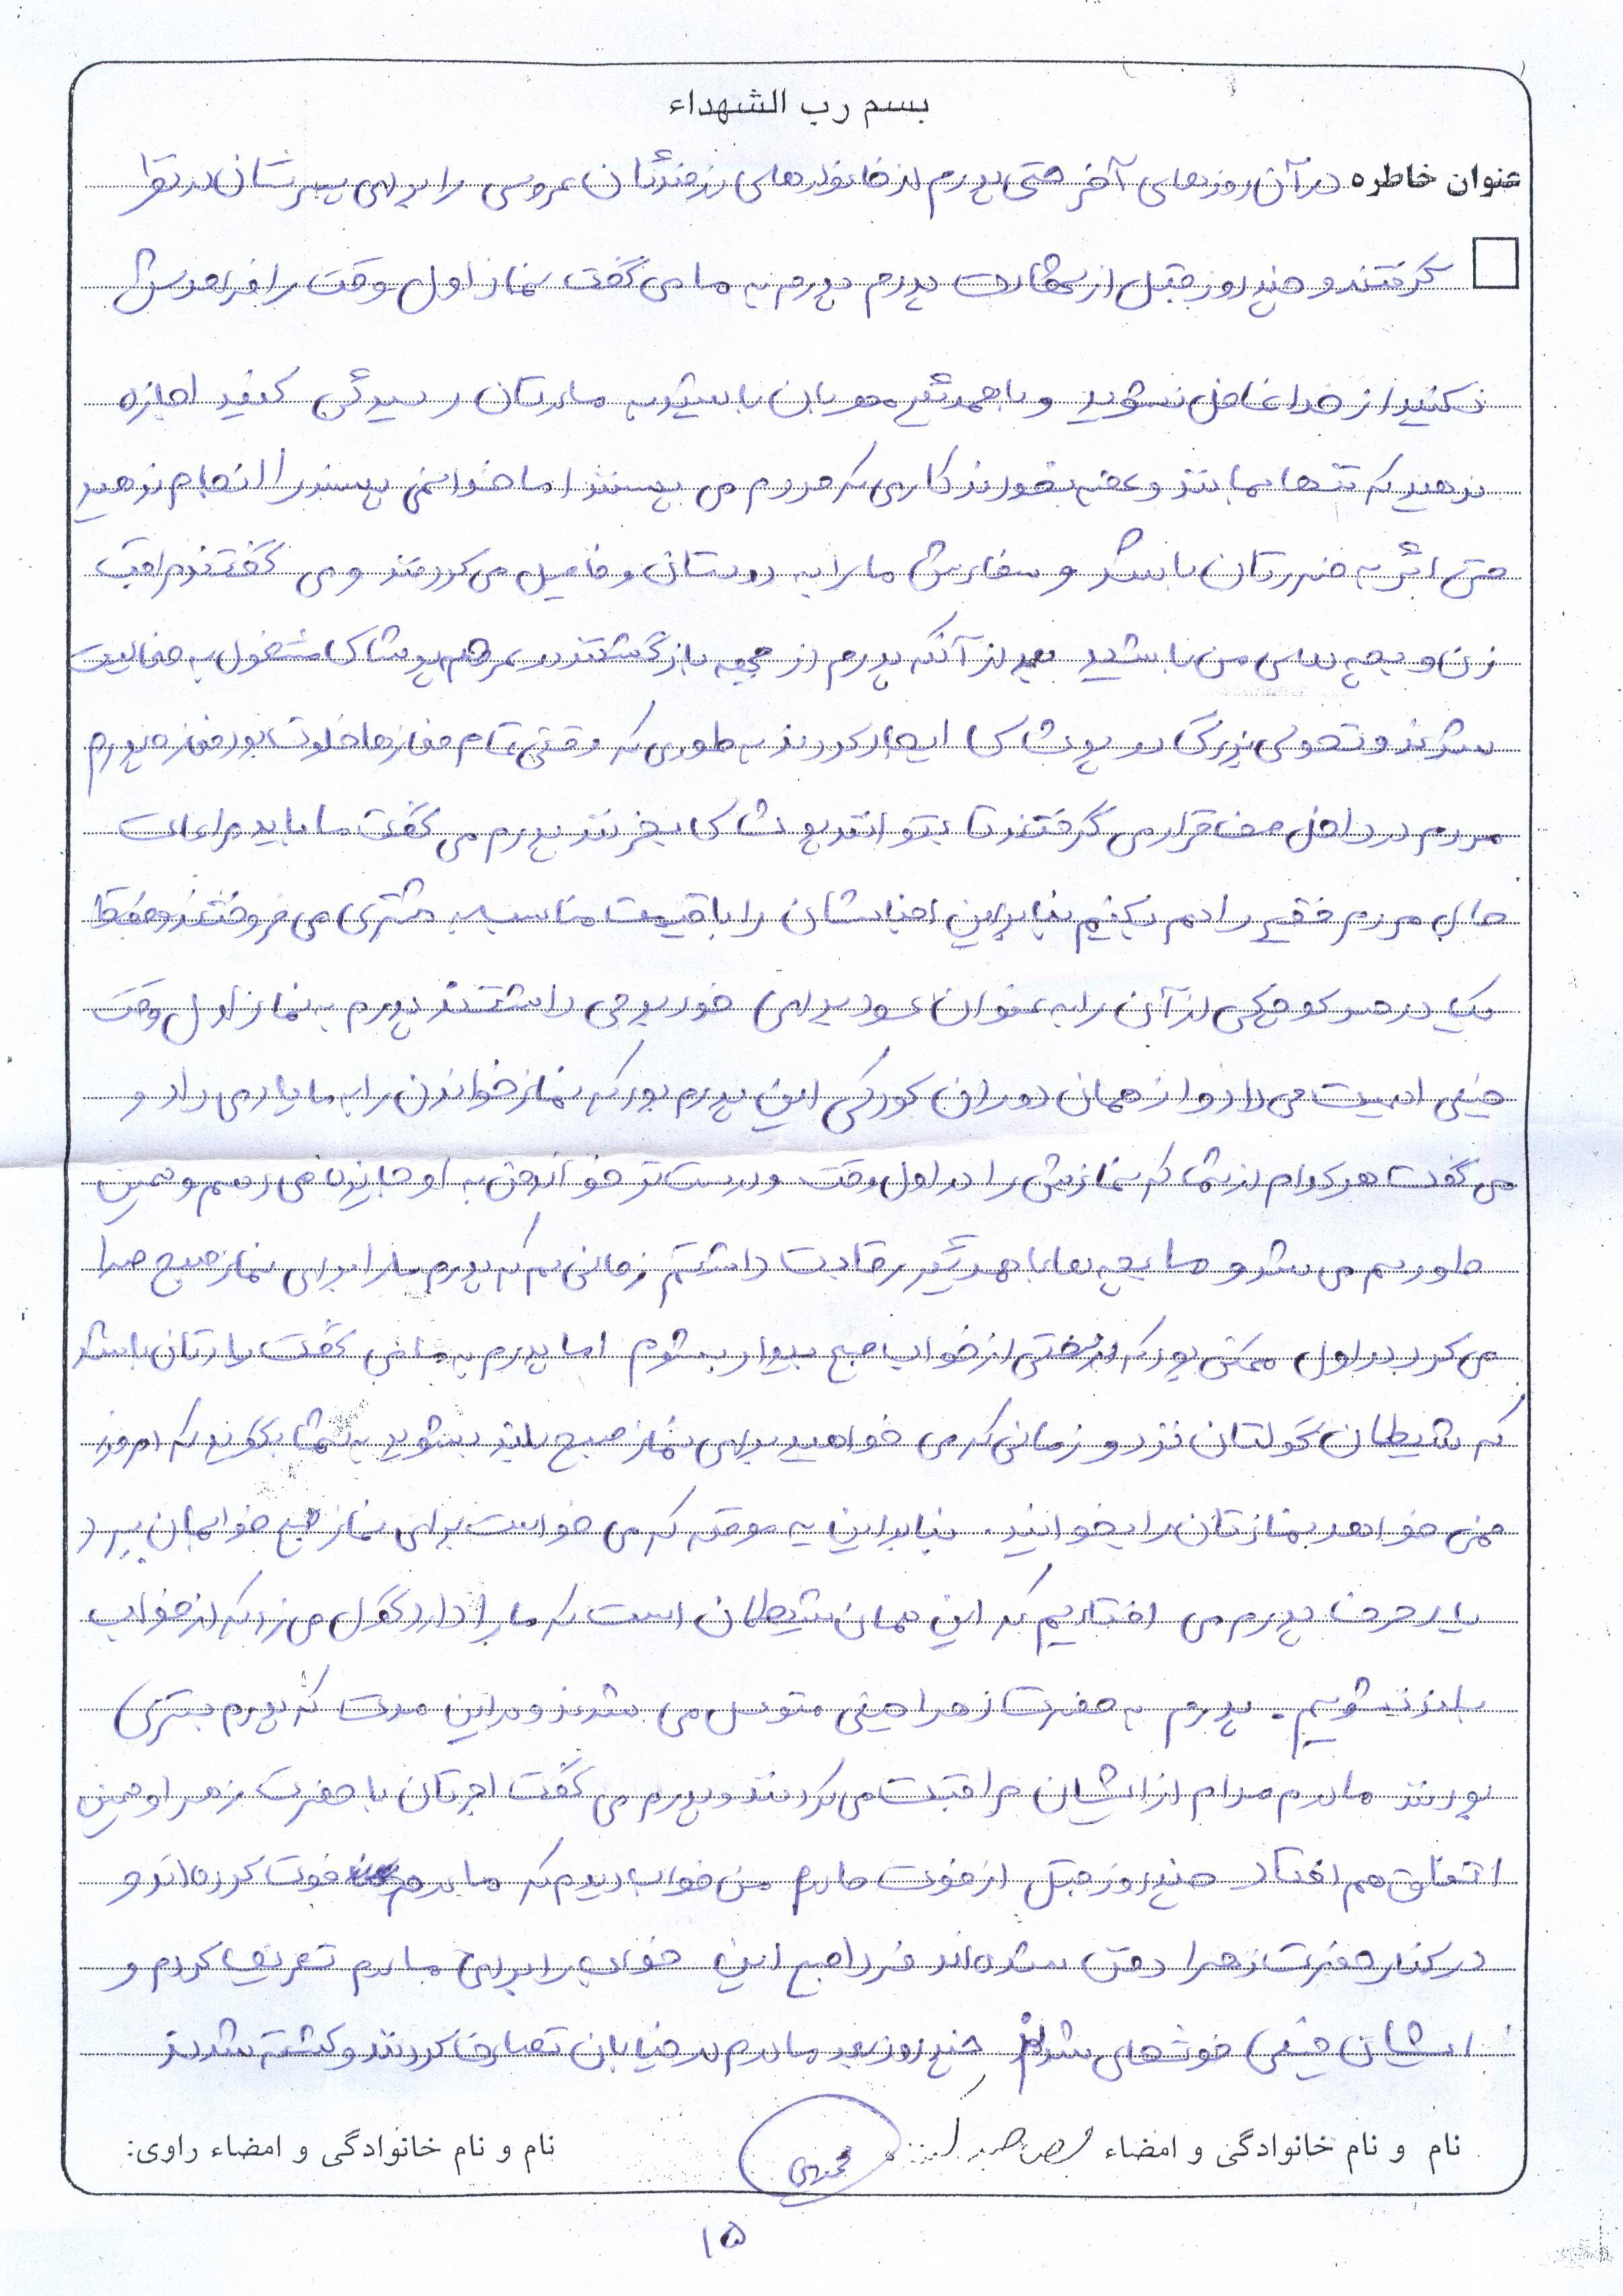 بسم رب الشهداء
عنوان خاطره در آن روزهای آخر حتی پدرم از خانواده‌های رزمندگان عروسی را برای پسرشان در نظر
گرفتند و چند روز قبل از شهادت پدرم پدرم به ما می گفت نماز اول وقت را فراموش
نکنید از خدا غافل نشوید و با همدیگر مهربان باشید به مادرتان رسیدگی کنید اجازه
ندهید که تنها بمانند و غصه بخورند کاری که مردم می پسندند اما خدا نمی پسندد را انجام ندهید
حتی اگر به ضررتان باشد و سفارش ما را به دوستان و فامیل می کردند و می گفتند مراقب
زن و بچه های من باشید بعد از آنکه پدرم از جبهه بازگشتند در عرصه پوشاک مشغول به فعالیت
شدند و تحولی بزرگ در پوشاک ایجاد کردند به طوری که وقتی تمام مغازه ها خلوت بود مغازه پدرم
مردم در داخل صف قرار می گرفتند تا بتوانند پوشاک بخرند پدرم می گفت ما باید مراعات
حال مردم فقیر را هم بکنیم بنابراین اجناسشان را با قیمت مناسب به مشتری می فروختند و فقط
یک درصد کوچکی از آن را به عنوان سود برای خود برمی داشتند پدرم به نماز اول وقت
خیلی اهمیت می داد و از همان دوران کودکی این پدرم بود که نماز خواندن را به ما یاد می داد و
می گفت هر کدام از شما که نمازش را در اول وقت و درست تر خواند من به او جایزه می دهم و همین
طور هم می شد و ما بچه ها با همدیگر رقابت داشتیم زمانی هم که پدرم ما را برای نماز صبح صدا
می کرد در اول ممکن بود که به سختی از خواب صبح بیدار بشوم اما پدرم به ما می گفت یادتان باشد
که شیطان گولتان نزند و زمانی که می خواهید برای نماز صبح بلند بشوید به شما بگوید که امروز
نمی خواهد نمازتان را بخوانید. بنابراین یه موقع که می خواست برای نماز صبح خوابمان ببرد
یاد حرف پدرم می افتادیم که این همان شیطان است که ما را دارد گول می زند که از خواب
بلند نشویم. پدرم به حضرت زهرا خیلی متوسل می شدند و در این مدت که پدرم بستری
بودند مادرم مدام از ایشان مراقبت می کردند و پدرم می گفت اجرتان با حضرت زهرا و همین
اتفاق هم افتاد چند روز قبل از فوت مادرم من خواب دیدم که مادرم فوت کرده اند و
در کنار حضرت زهرا دفن شده اند فردا صبح این خواب را برای مادرم تعریف کردم و
ایشان خیلی خوشحال شدند چند روز بعد مادرم در خیابان تصادف کردند و کشته شدند
نام و نام خانوادگی و امضاء
نام و نام خانوادگی و امضاء راوی:
۱۵